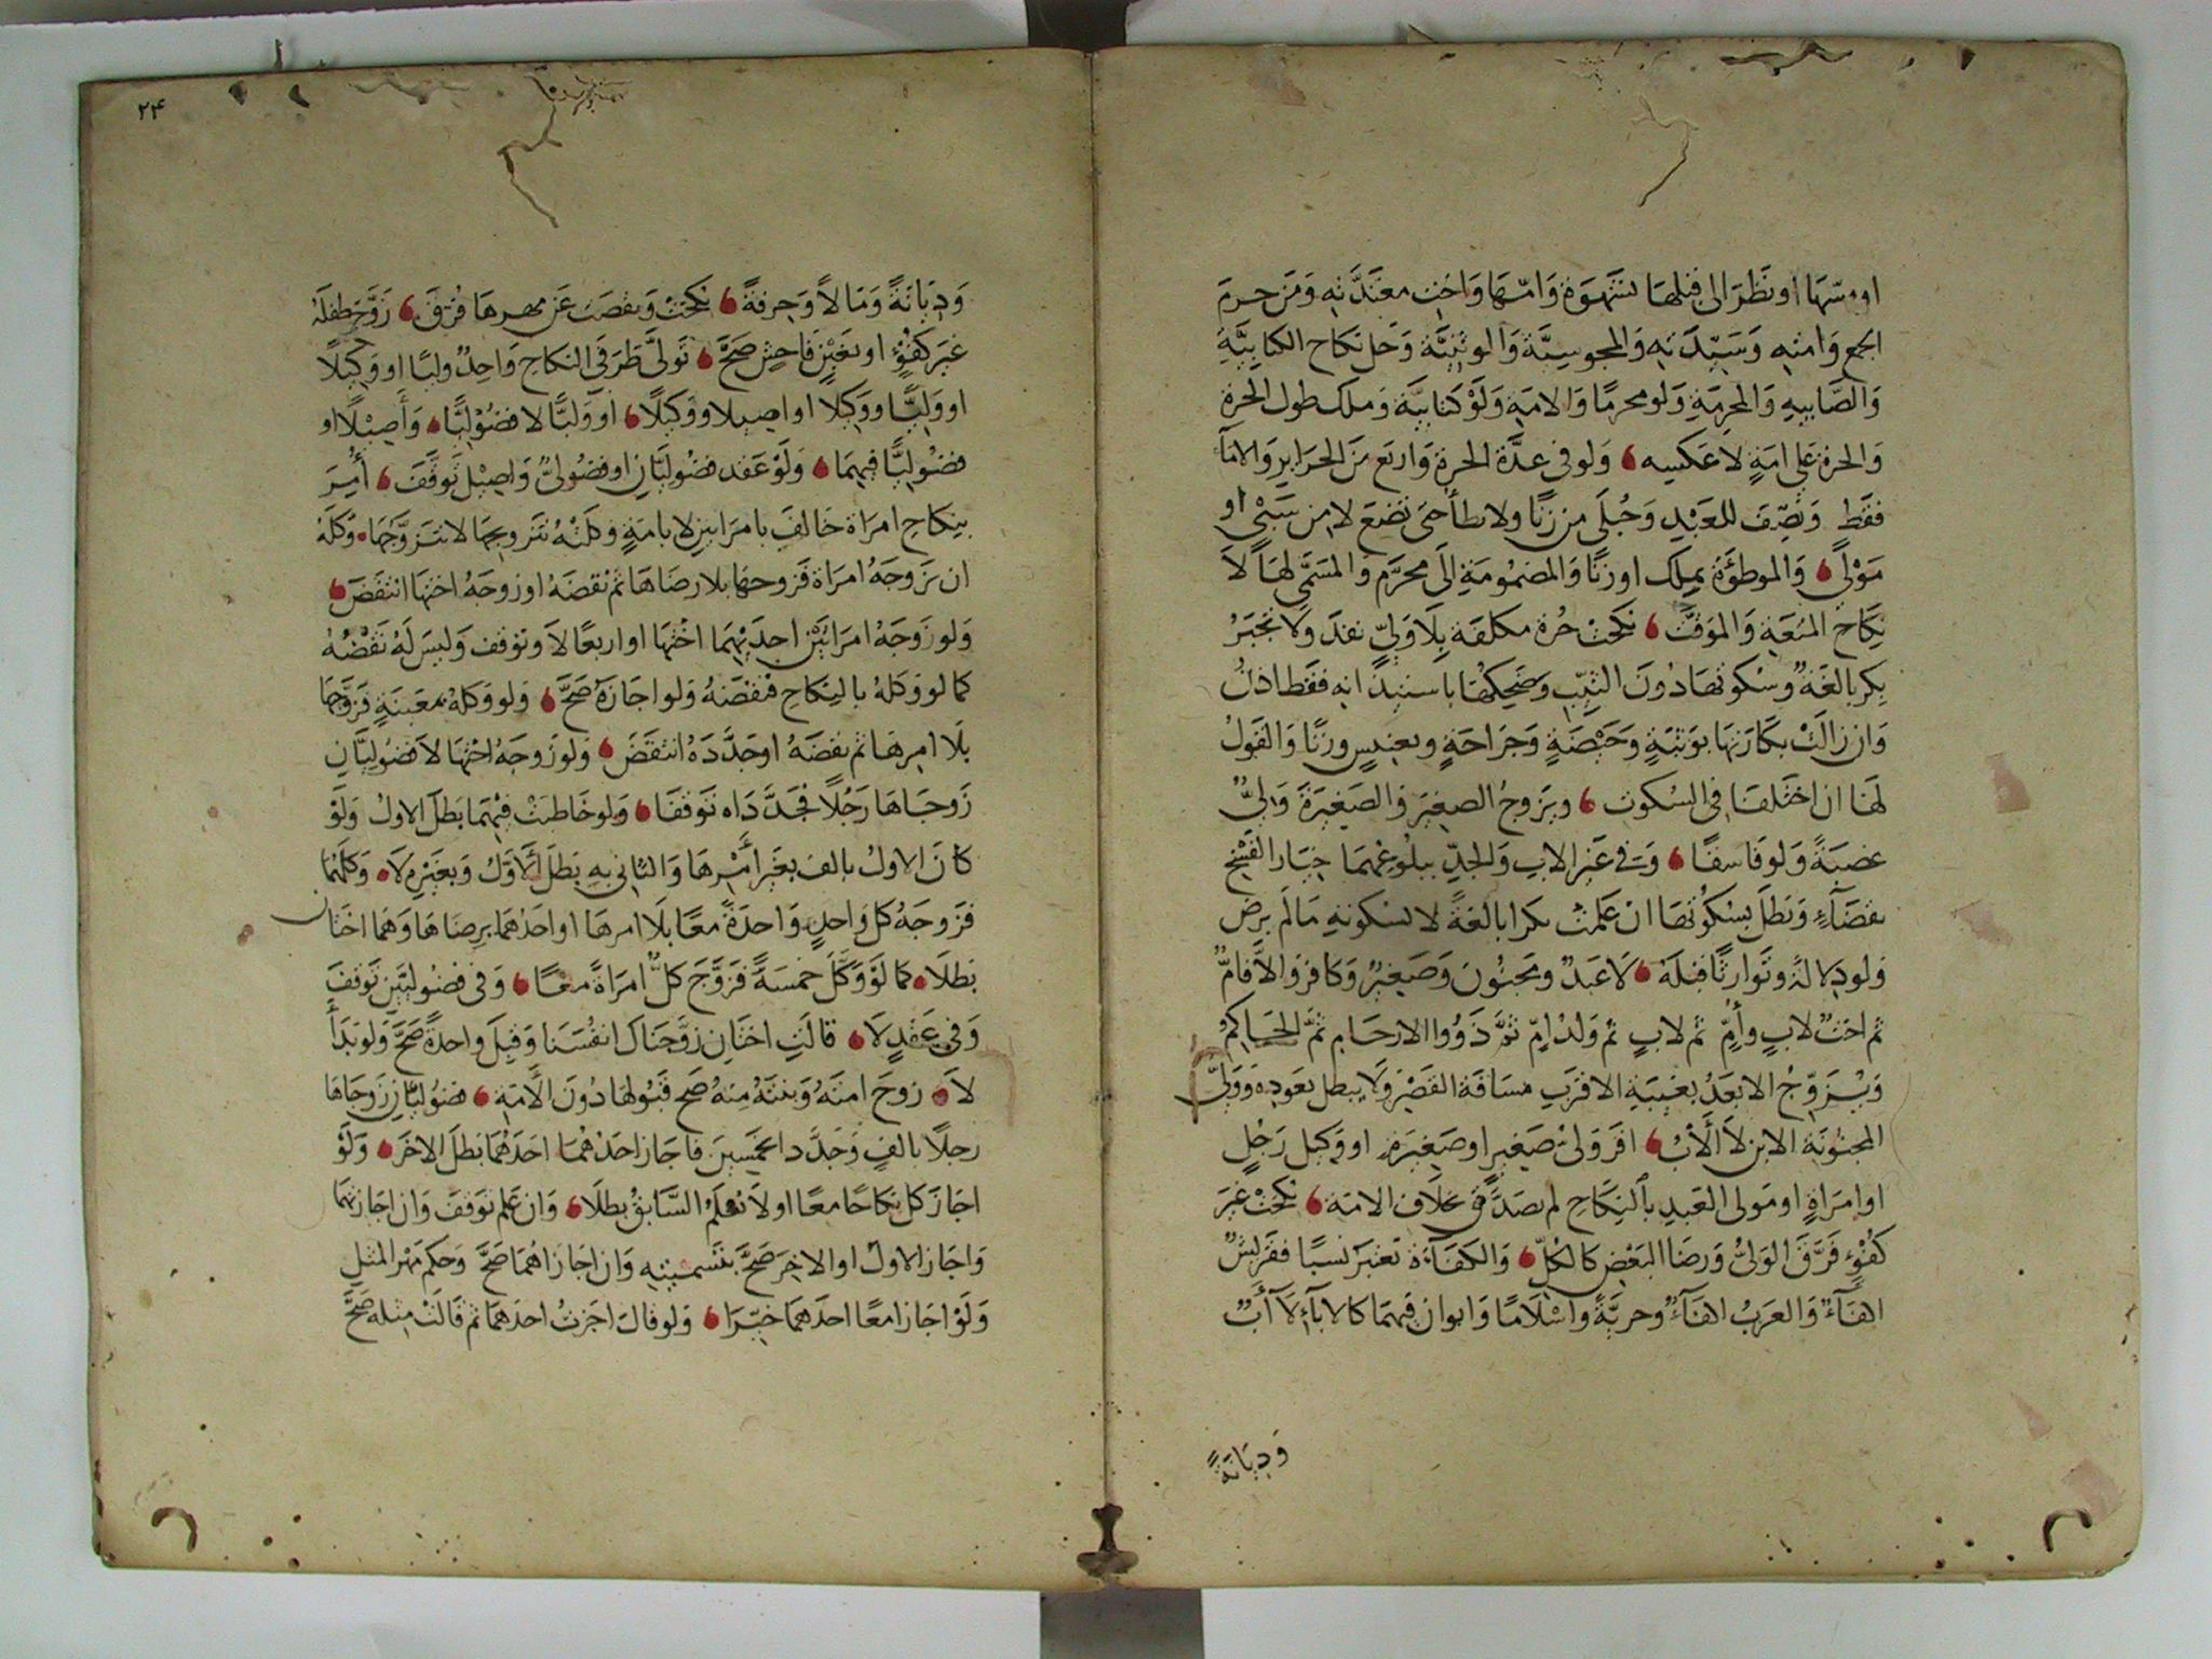 او مسّها او نظر الى قبلها بشهوة وامّها واخت معتدّته ومن حرم
الجمع وامته وسيّدته والمجوسيّة والوثنيّة وحل نكاح الكتابيّة
والصّابيه والمحرمة ولو محرمًا والامة ولو كتابيّة وملك طول الحرة
والحرة على امةٍ لا عكسه ، ولو في عدّة الحرة واربع من الحراير والامآ
فقط ونصّف للعبد وحُبلى من زنًا ولا يطأ حتى تضع لا من سبيٍ او
مولًى ، والموطؤة بملك او زنًا والمضمومة الى محرّم والمسمّى لها لا
نكاح المتعة والموقّت ، نكحت حُرة مكلفة بلا وليٍّ نفذ ولا تجبر
بكر بالغةٌ وسكوتها دون الثيّب وضحكها باستيذانه فقط اذنٌ
وان زالت بكارتها بوثبةٍ وحيضةٍ وجراحةٍ وتعنيسٍ وزنًا والقول
لها ان اختلفا في السكوت ، ويزوج الصغير والصغيرة وليٌّ
عصبةً ولو فاسقًا ، وفي غير الاب والجدّ ببلوغهما خيار الفسخ
بقضآءٍ وبطل بسكوتها ان علمت بكرا بالغةً لا بسكوته مالم يرض
ولو دلالةً وتوارثا قبله ، لا عبدٌ ومجنون وصغيرٌ وكافر والّا فامٌّ
ثم اختٌ لابٍ وأمٍّ ثم لابٍ ثم ولد امٍّ ثمّ ذووا الارحام ثمّ الحاكم
ويُزوّج الابعد بغيبة الاقرب مسافة القصر ولا يبطل بعوده ووليّ
المجنونة الابن لا الأب ، اقر ولى صغيرٍ او صغيرةٍ او وكيل رجلٍ
او امراةٍ او مولى العبد بالنكاح لم يصدّق بخلاف الامة ، نكحت غير
كفؤٍ فرّق الوليّ ورضا البعض كالكلّ ، والكفاءة تعتبر نسبًا فقريشٌ
اكفآءٌ والعرب اكفآءٌ وحريّةً واسلامًا وابوان فيهما كالابآء لا أبٌ
وديانةً
٢٤
وديانةً ومالاً وحرفةً ، نكحت ونقصت عن مهرها فُرّق ، زوّج طفله
غير كفؤٍ او بغبنٍ فاحشٍ صحّ ، تولّى طرفي النكاح واحدٌ وليًا او وكيلًا
او وليًّا ووكيلا او اصيلا ووكيلًا ، او وليًّا لا فضوليًّا ، وأصيلًا او
فضوليًّا فيهما ، ولو عقد فضوليّان او فضوليٌّ واصيل توقّف ، أُمر
بنكاح امراة خالف بامراتين لا بامةٍ وكلتْه بتزويجها لا بتزوّجها ، وكله
ان يزوجه امراة فزوجها بلا رضاها ثم نقضه او زوجه اختها انتقض ،
ولو زوجه امراتين احديهما اختها او اربعًا لا وتوقف وليس له نقضه
كما لو وكله بالنكاح فنقضه ولو اجازه صحّ ، ولو وكله بمعينةٍ فزوّجها
بلا امرها ثم نقضه او جدّده انتقض ، ولو زوجه اختها لا فضوليّان
زوجاها رجلًا فجدّداه توقفا ، ولو خاطبت فيهما بطل الاول ولو
كان الاول بالف بغير أمرها والثاني به بطل الأوّل وبغيره لا ، وكلهما
فزوجه كل واحدٍ واحدةً معًا بلا امرها او احدهما برضاها وهما اختان
بطلا ، كما لو وكّل خمسةً فزوّج كلٌّ امراةً معًا ، وفي فضوليّين توقف
وفي عقدٍ لا ، قالت اختان زوّجناك انفسنا وقبل واحدةً صحّ ولو بدأ
لا ، زوج امته وبنته منه صح قبولها دون الأمة ، فضوليّان زوجاها
رجلًا بالفٍ وجدّدا بخمسين فاجاز احدهما احدهما بطل الاخر ، ولو
اجاز كل نكاحًا معًا او لا نعلم السّابق بطلا ، وان علم توقف وان اجازتهما
واجاز الاول او الاخر صحّ بتسميته وان اجازاهما صحّ وحكم مهر المثل
ولو اجازا معًا احدهما خيّرا ، ولو قال اجزت احدهما ثم قالت مثله صحّ